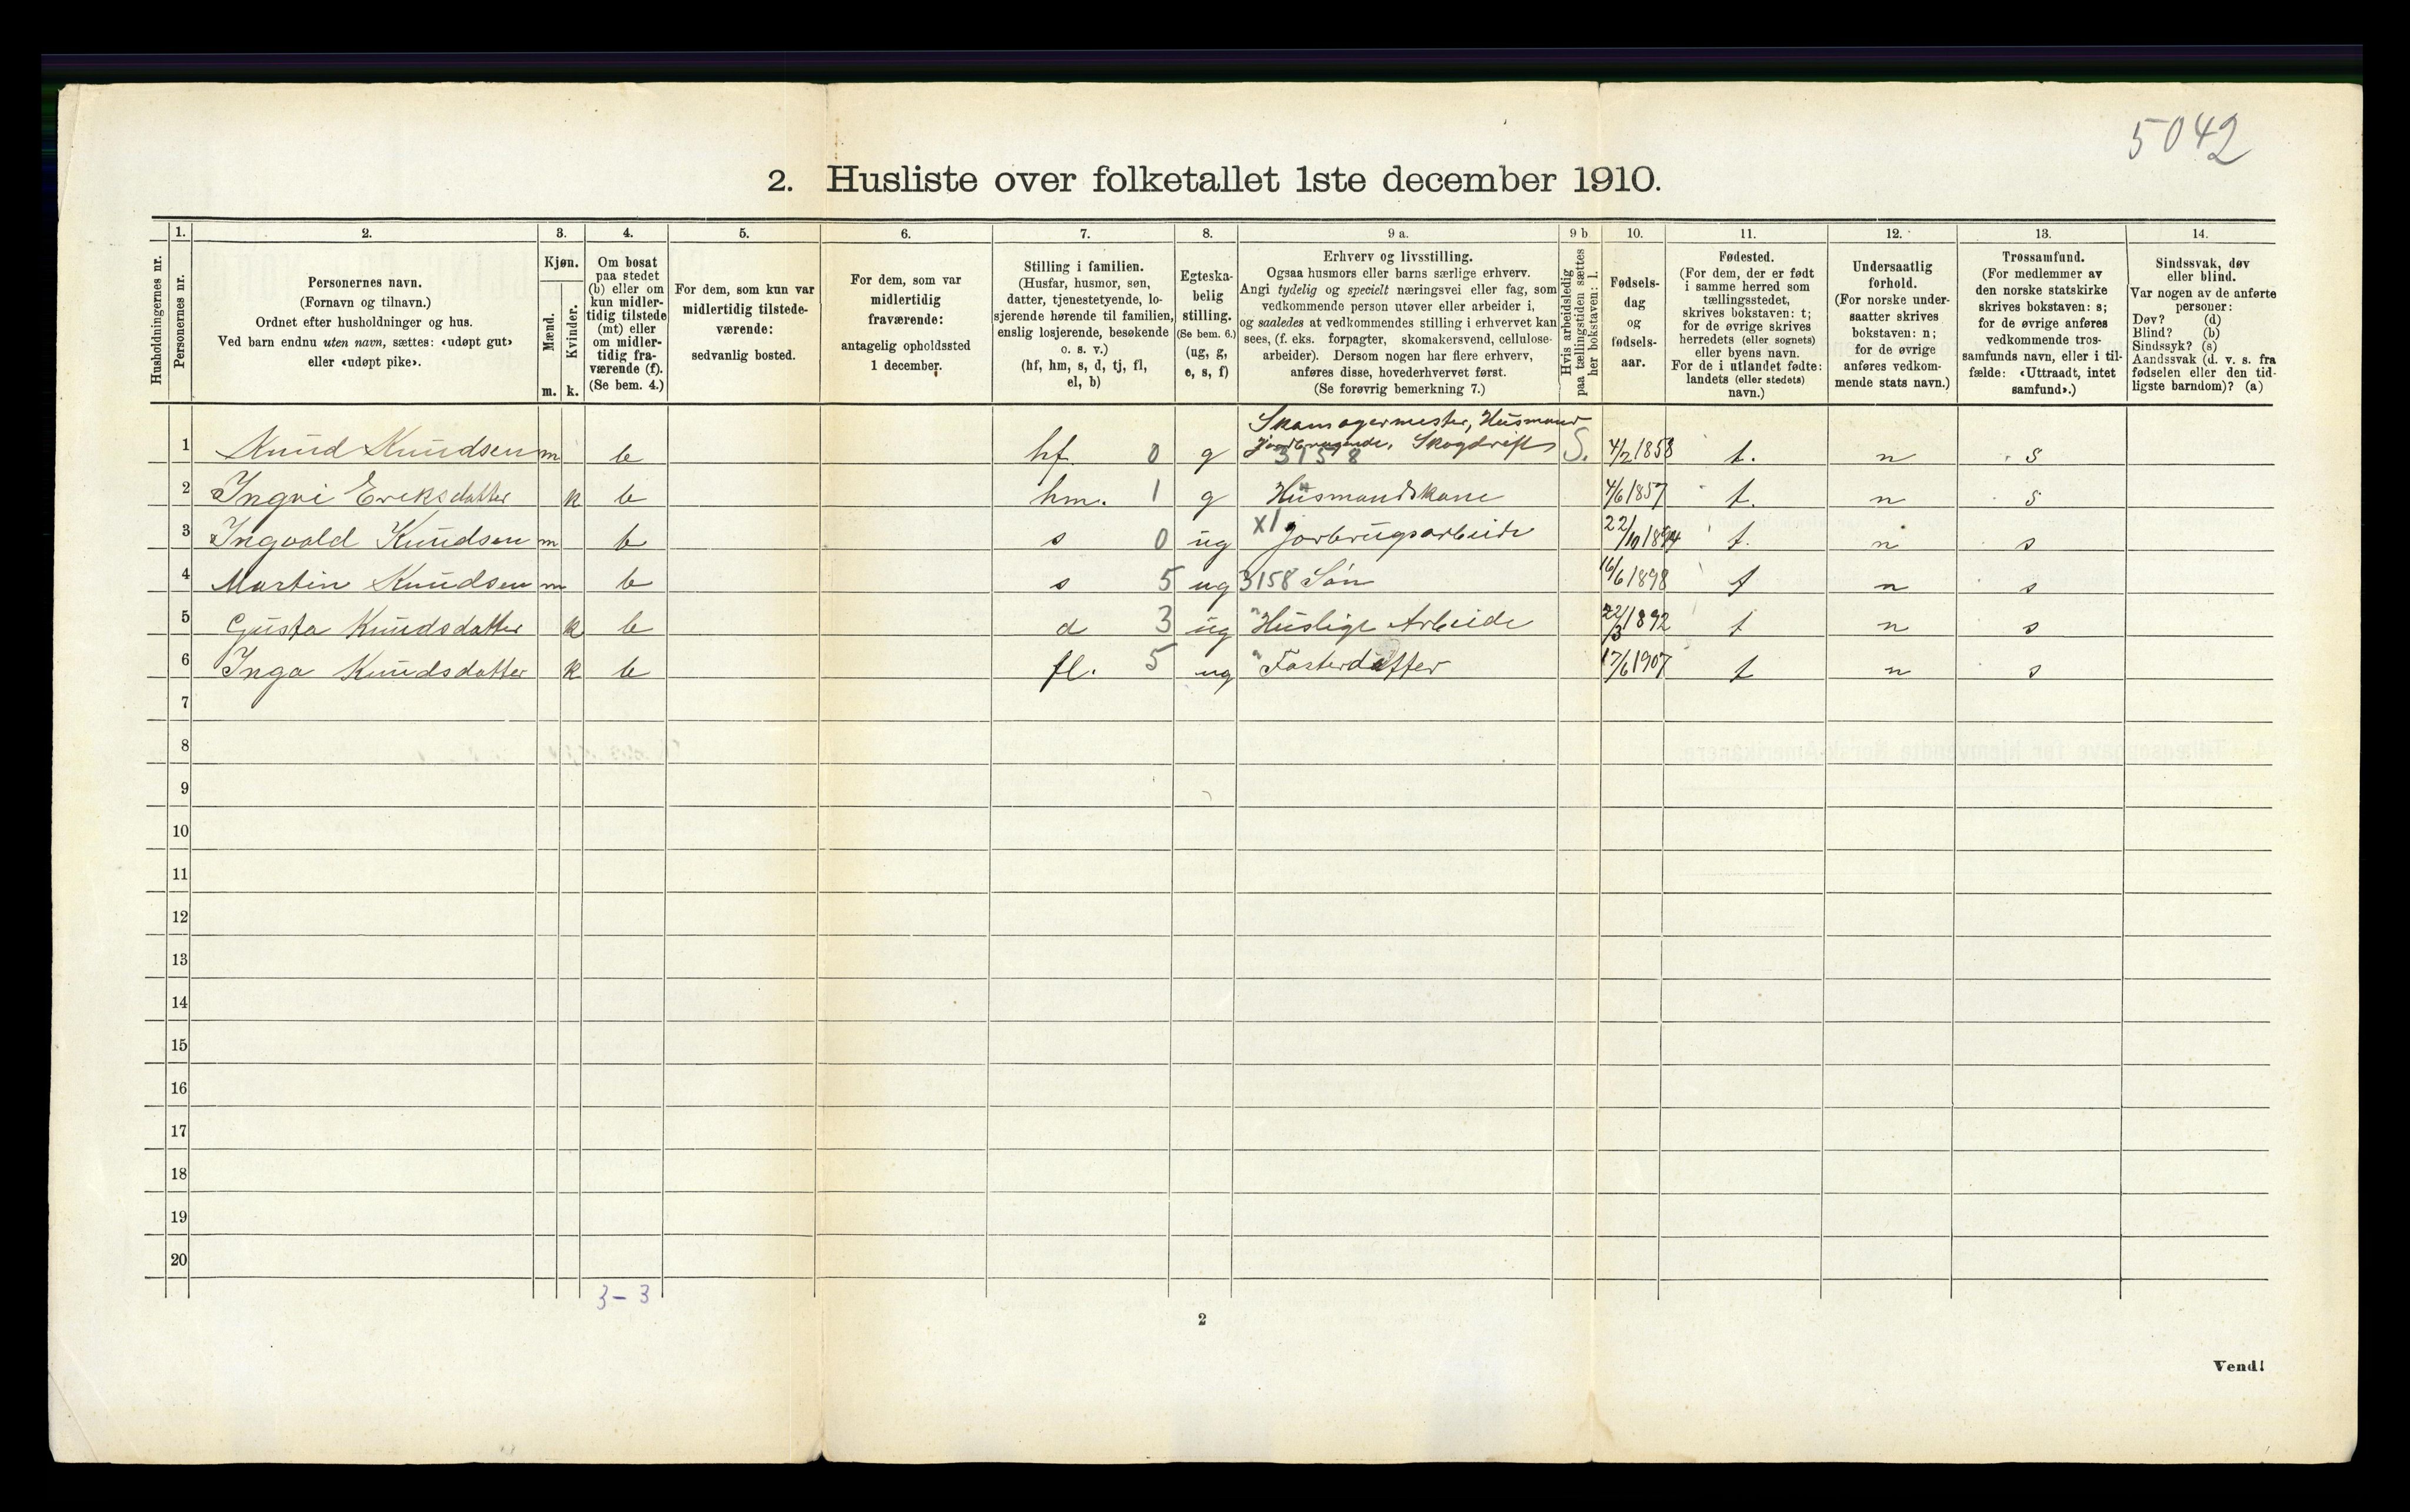 5042
2. Husliste over folketallet 1ste december 1910.
Husholdningernes nr.
1.
Personernes nr.
2.
Personernes navn.
(Fornavn og tilnavn.)
Ordnet efter husholdninger og hus.
Ved barn endnu uten navn, sættes: «udøpt gut»
eller «udøpt pike».
3.
Kjøn.
Mænd.
Kvinder.
m. k.
4.
Om bosat
paa stedet
(b) eller om
kun midler-
tidig tilstede
(mt) eller
om midler-
tidig fra-
værende (f).
(Se bem. 4.)
5.
For dem, som kun var
midlertidig tilstede-
værende:
sedvanlig bosted.
6.
For dem, som var
midlertidig
fraværende:
antagelig opholdssted
1 december.
7.
Stilling i familien.
(Husfar, husmor, søn,
datter, tjenestetyende, lo-
sjerende hørende til familien,
enslig losjerende, besøkende
o. s. v.)
(hf, hm, s, d, tj, fl,
el, b)
8.
Egteska-
belig
stilling.
(Se bem. 6.)
(ug, g,
e, s, f)
9 a.
Erhverv og livsstilling.
Ogsaa husmors eller barns særlige erhverv.
Angi tydelig og specielt næringsvei eller fag, som
vedkommende person utøver eller arbeider i,
og saaledes at vedkommendes stilling i erhvervet kan
sees, (f. eks. forpagter, skomakersvend, cellulose-
arbeider). Dersom nogen har flere erhverv,
anføres disse, hovederhvervet først.
(Se forøvrig bemerkning 7.)
9 b
Hvis arbeidsledig
paa tællingstiden sættes
her bokstaven: l.
10.
Fødsels-
dag
og
fødsels-
aar.
11.
Fødested.
(For dem, der er født
i samme herred som
tællingsstedet,
skrives bokstaven: t;
for de øvrige skrives
herredets (eller sognets)
eller byens navn.
For de i utlandet fødte:
landets (eller stedets)
navn.)
12.
Undersaatlig
forhold.
(For norske under-
saatter skrives
bokstaven: n;
for de øvrige
anføres vedkom-
mende stats navn.)
13.
Trossamfund.
(For medlemmer av
den norske statskirke
skrives bokstaven: s;
for de øvrige anføres
vedkommende tros-
samfunds navn, eller i til-
fælde: «Uttraadt, intet
samfund».)
14.
Sindssvak, døv
eller blind.
Var nogen av de anførte
personer:
Døv? (d)
Blind? (b)
Sindssyk? (s)
Aandssvak (d. v. s. fra
fødselen eller den tid-
ligste barndom)? (a)
Skomagermester, Husmand
1 Knud Knudsen m b hf 0 g Jordbrugende, Skogdrift S. 4/2 1858 t. n s
3158
2 Ingri Ereksdatter k b hm. 1 g Husmandskone 4/6 1857 t. n s
3 Ingvald Knudsen m b s 0 ug x1 Jorbrugsarbeide 22/10 1894 t. n s
4 Martin Knudsen m b s 5 ug 3158 Søn 16/6 1898 t n s
5 Gusta Knudsdatter k b d 3 ug " Huslige Arbeide 22/3 1892 t n s
6 Inga Knudsdatter k b fl. 5 ug " Fosterdatter 17/6 1907 t n s
7
8
9
10
11
12
13
14
15
16
17
18
19
20
3-3
2
Vend!